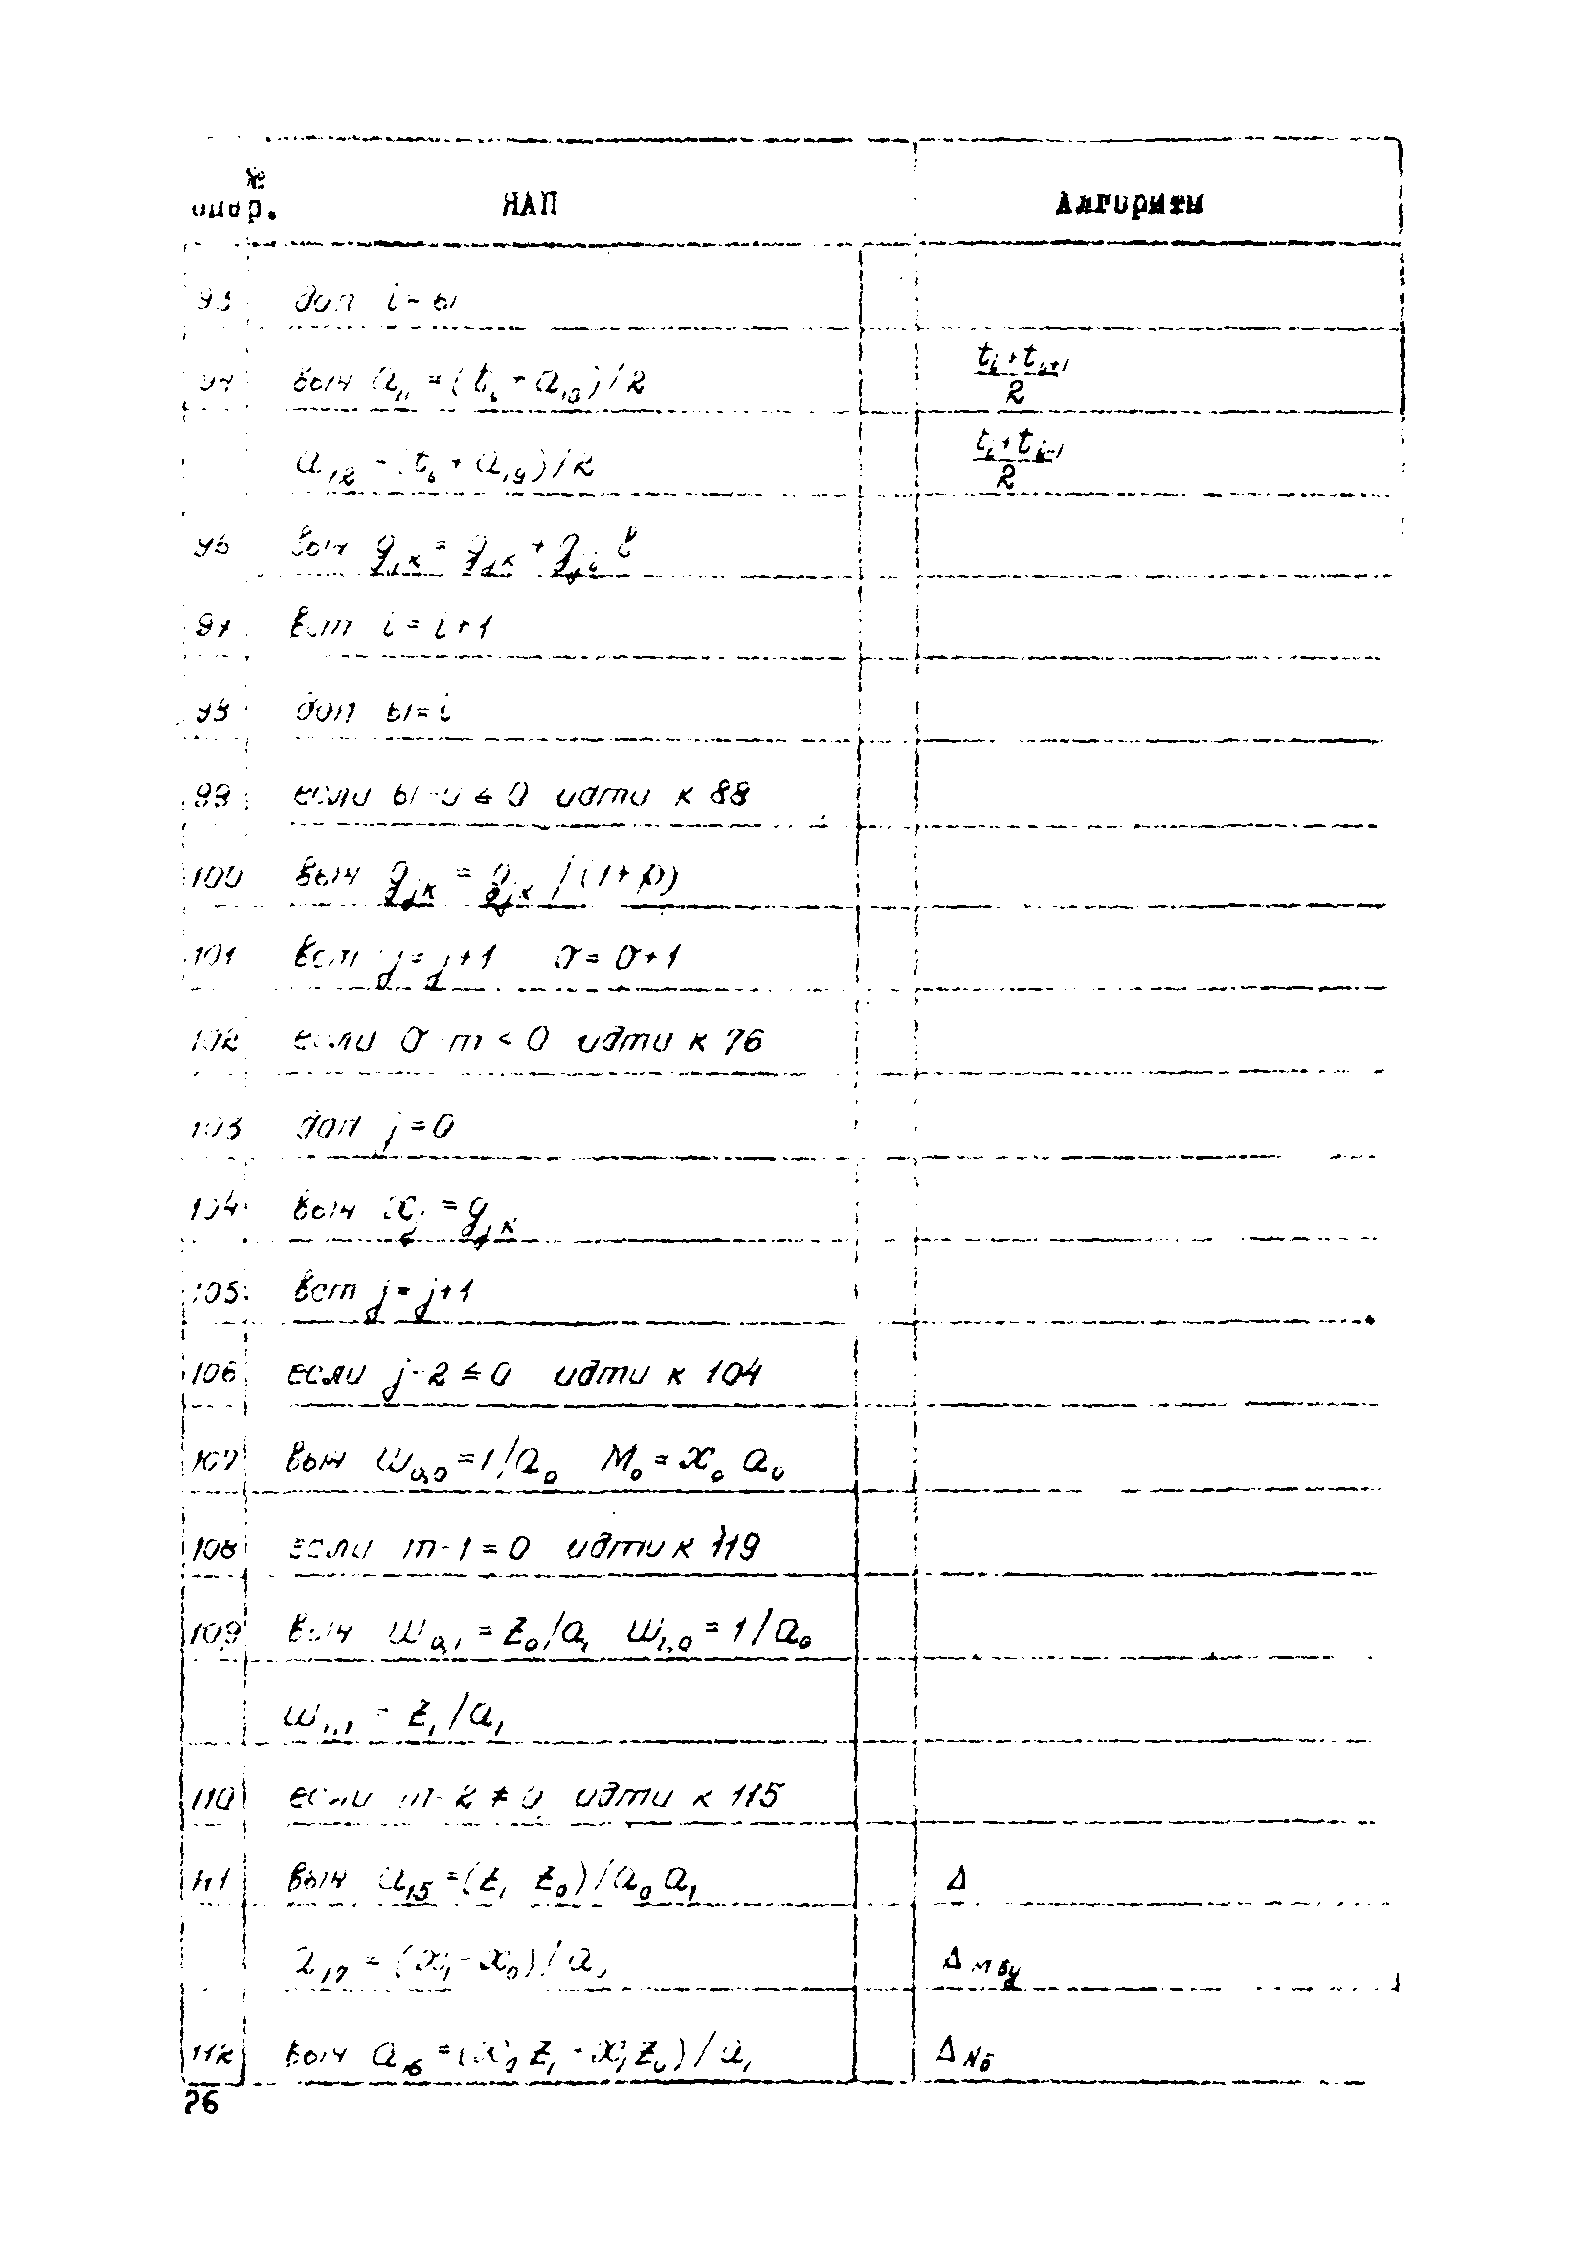 №
опер. ЯАП Алгоритм
93 доп i = ы
94 выч a₁₁ = (tᵢ + a₁₈)/2 (tᵢ + tᵢ₊₁)/2
a₁₂ = (tᵢ + a₁₉)/2 (tᵢ + tᵢ₋₁)/2
96 выч
97 вст i = i+1
98 доп ы = i
99 если ы-υ ≤ 0 идти к 88
100 выч g_jк = g_jк /(1+p)
101 вст j = j+1 σ = σ+1
102 если σ-m < 0 идти к 76
103 доп j = 0
104 выч x_j = g_jк
105 вст j = j+1
106 если j-2 ≤ 0 идти к 104
107 выч ш₀,₀ = 1/a₀ M₀ = x₀ a₀
108 если m-1 = 0 идти к 119
109 выч ш₀,₁ = z₀/a₁ ш₁,₀ = 1/a₀
ш₁,₁ = z₁/a₁
110 если m-2 ≠ 0 идти к 115
111 выч a₁₅ = (z₁-z₀)/a₀ a₁ Δ
a₁₇ = (x₁-x₀)/a₁ Δ м бу
112 выч a₁₆ = (x₀ z₁ - x₁ z₀)/a₁ Δ Nб
26